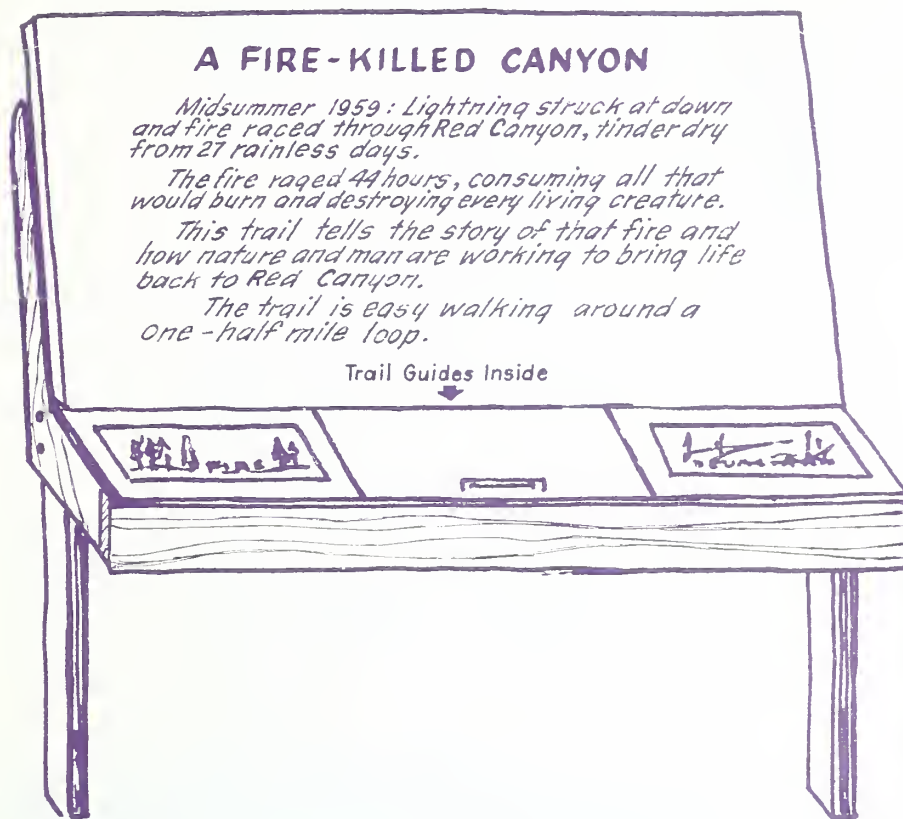 A FIRE-KILLED CANYON
Midsummer 1959: Lightning struck at dawn
and fire raced through Red Canyon, tinder dry
from 27 rainless days.
The fire raged 44 hours, consuming all that
would burn and destroying every living creature.
This trail tells the story of that fire and
how nature and man are working to bring life
back to Red Canyon.
The trail is easy walking around a
one-half mile loop.
Trail Guides Inside
FIRE